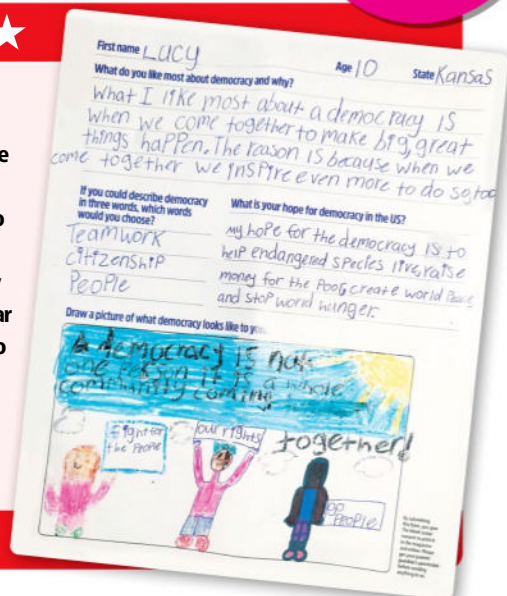 First name Lucy Age 10 State Kansas
What do you like most about democracy and why?
What I like most about a democracy is
when we come together to make big, great
things happen. The reason is because when we
come together we inspire even more to do so, too
If you could describe democracy
in three words, which words
would you choose?
Teamwork
citizenship
People
What is your hope for democracy in the US?
my hope for the democracy is to
help endangered species live, raise
money for the poor, create world Peace
and stop world hunger.
Draw a picture of what democracy looks like to
a democracy is not
one person it is a whole
community coming
together!
Fight for
the People
our rights
go
People
By submitting
this form, you give
in the magazine
and online. Please
get your parent/
guardian's permission
before sending
anything to us.
e
o
ar
o